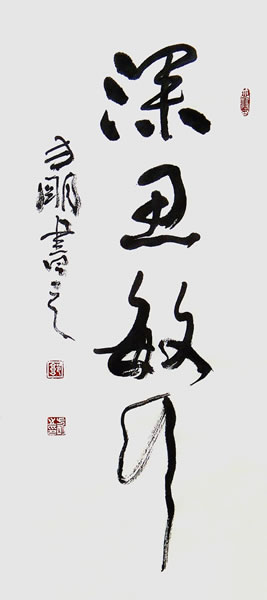 深思敏行
方刚書之